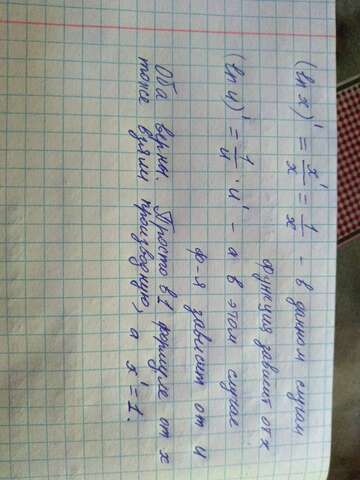 (ln x)' = x'/x = 1/x - в данном случаи
функция зависит от x
(ln u)' = 1/u · u' - а в этом случае
ф-я зависит от u
Оба верны. Просто в 1 формуле от x
тоже взяли производную, а x'=1.